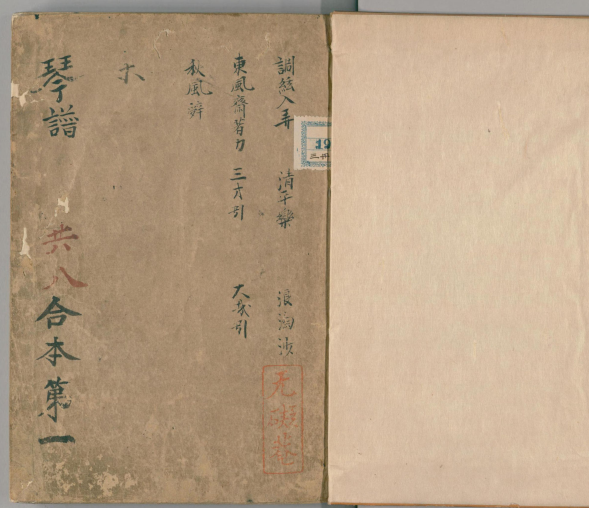 19
三冊
調絃入弄 清平樂 浪淘沙
東風齊着力 三才引 大哉引
秋風辞
琴譜 共八 合本第一